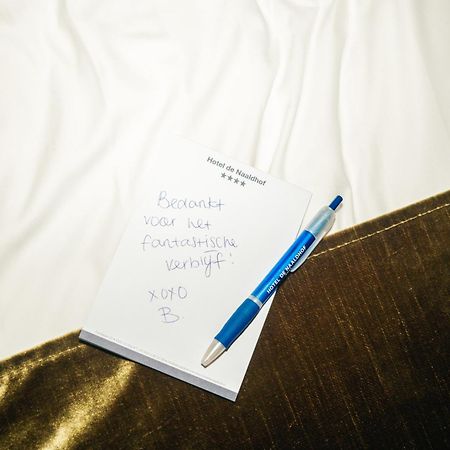 Hotel de Naaldhof
★★★★
Bedankt
voor het
fantastische
verblijf!
xoxo
B.
HOTEL DE NAALDHOF